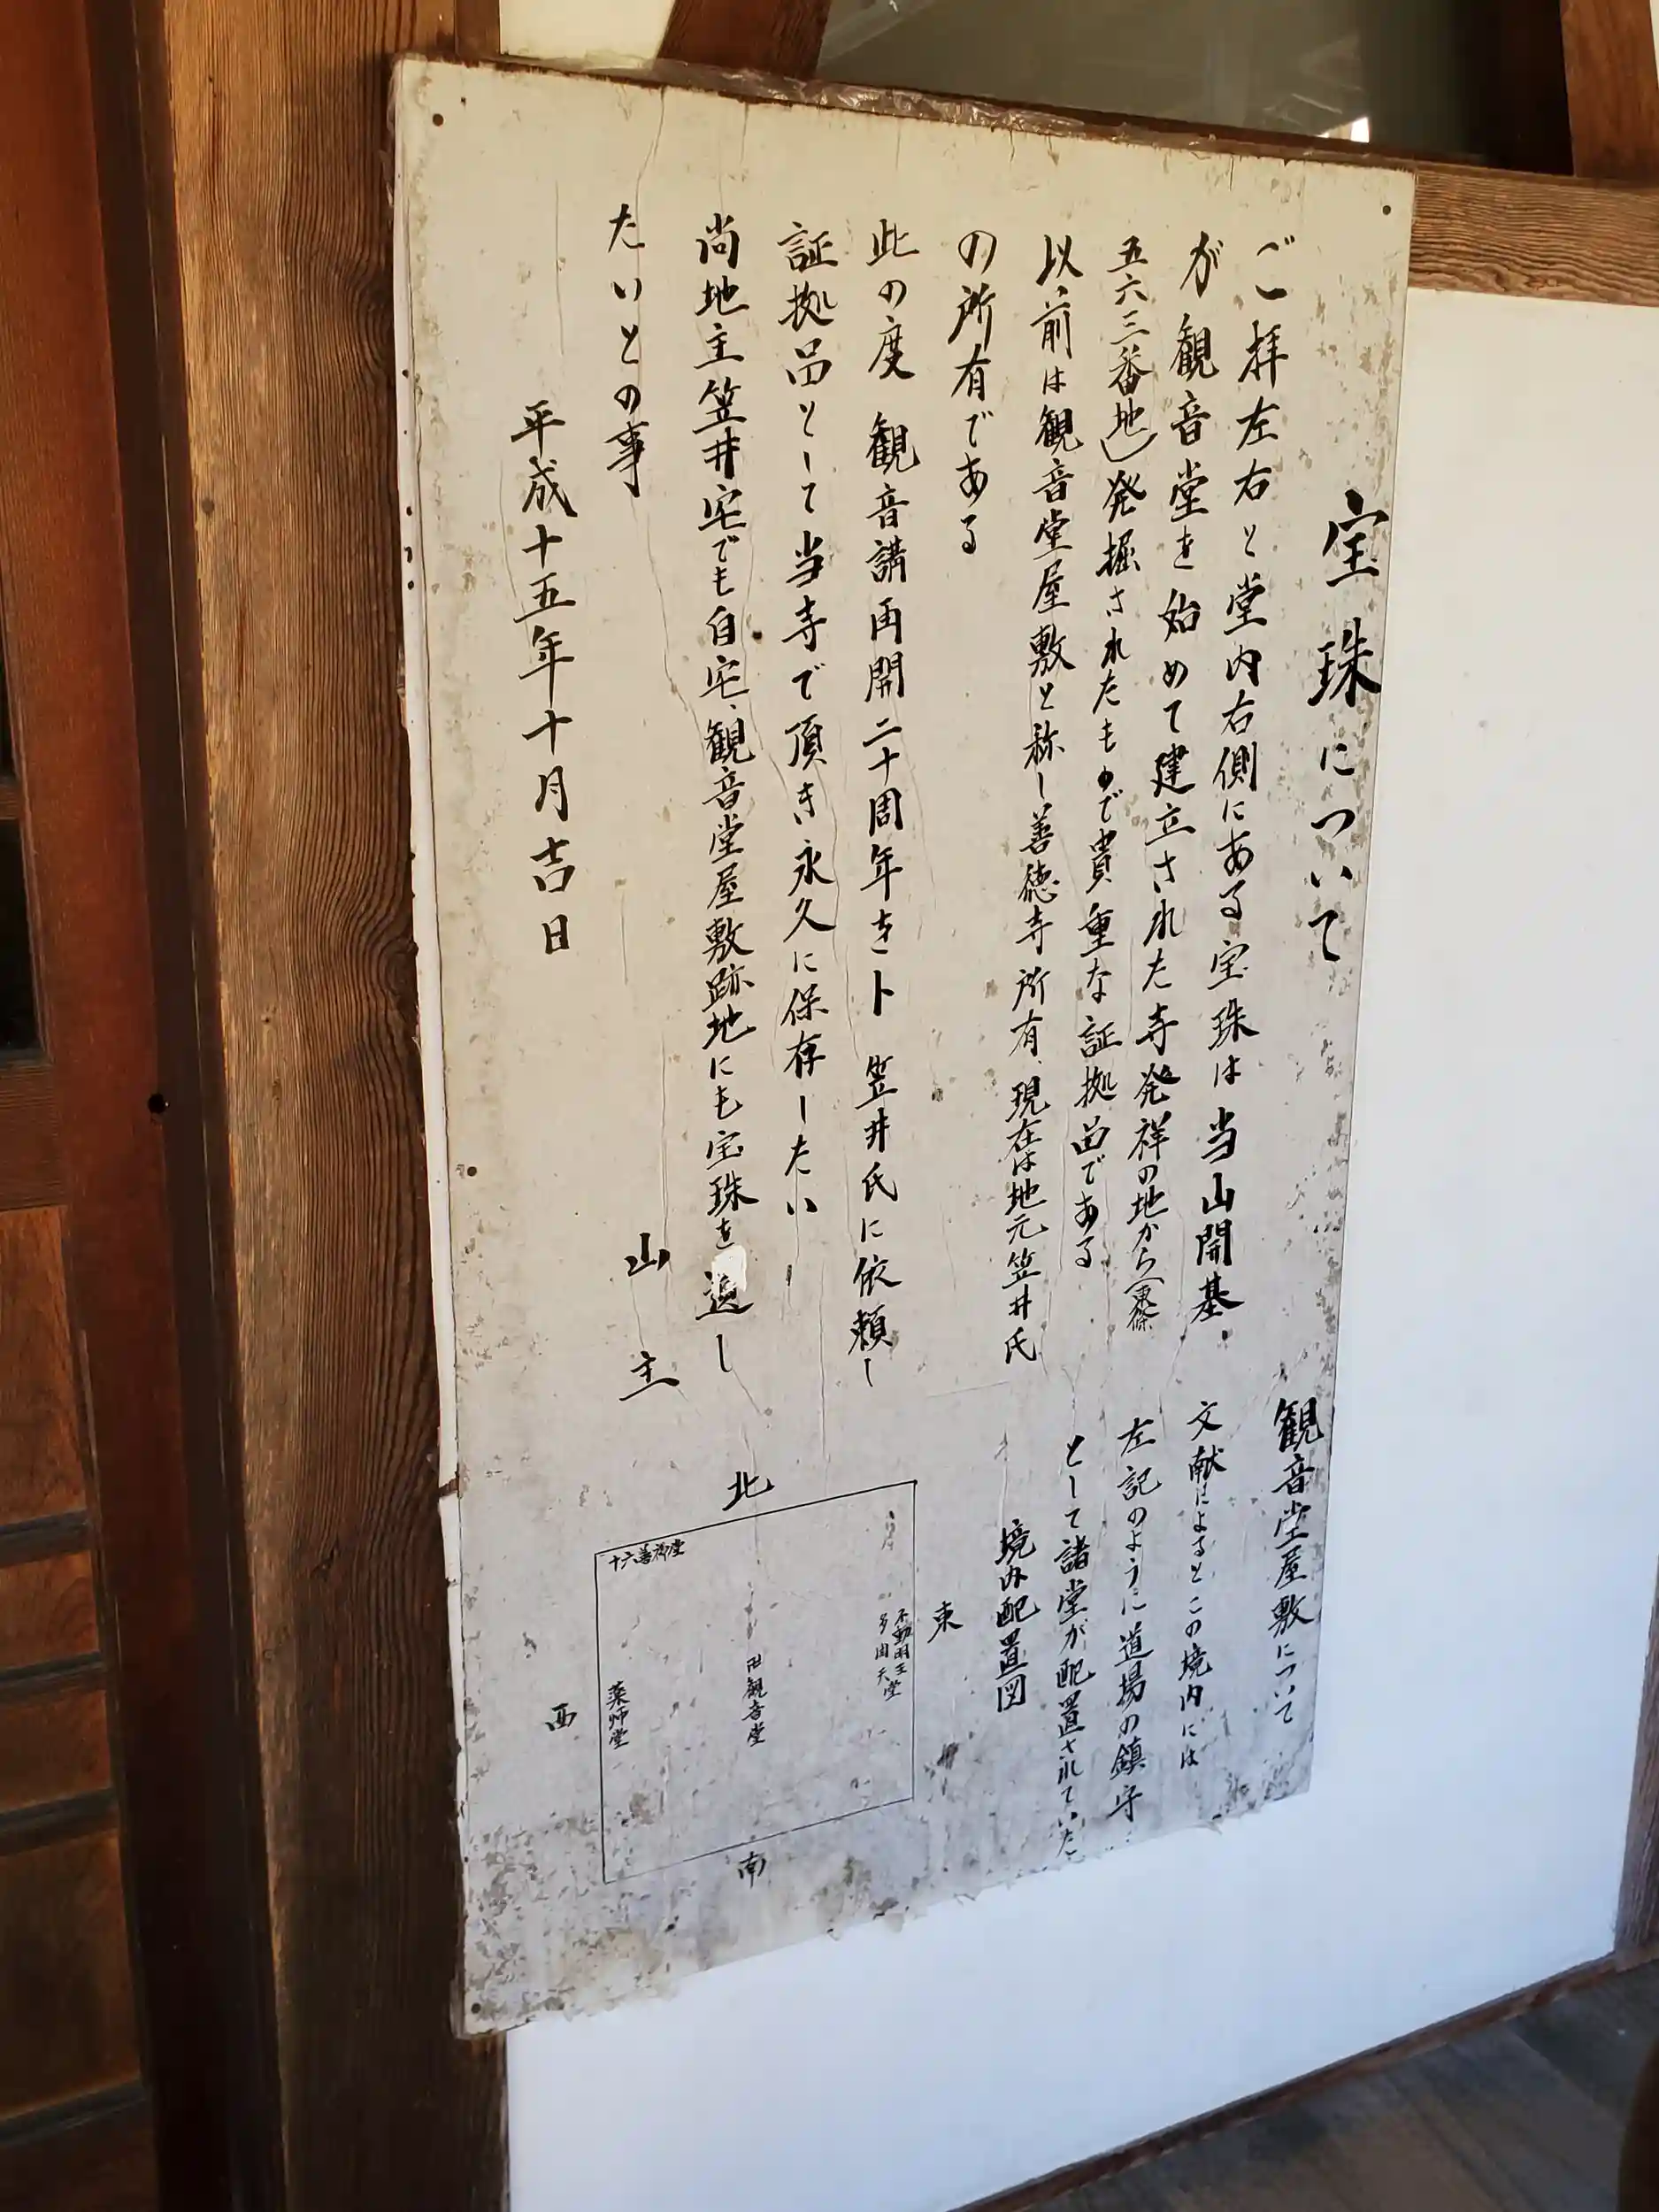 宝珠について
ご拝左右と堂内右側にある宝珠は当山開基
が観音堂を始めて建立された寺発祥の地から(東條
五六三番地)発掘されたもので貴重な証拠品である
以前は観音堂屋敷と称し善徳寺所有、現在は地元笠井氏
の所有である
此の度 観音講再開二十周年をト 笠井氏に依頼し
証拠品として当寺で頂き永久に保存したい
尚地主笠井宅でも自宅、観音堂屋敷跡地にも宝珠を返し
たいとの事
平成十五年十月吉日
山主
観音堂屋敷について
文献によるとこの境内には
左記のように道場の鎮守
として諸堂が配置されていた
境内配置図
北
東
西
南
十六善神堂
不動明王
多聞天堂
卍観音堂
薬師堂